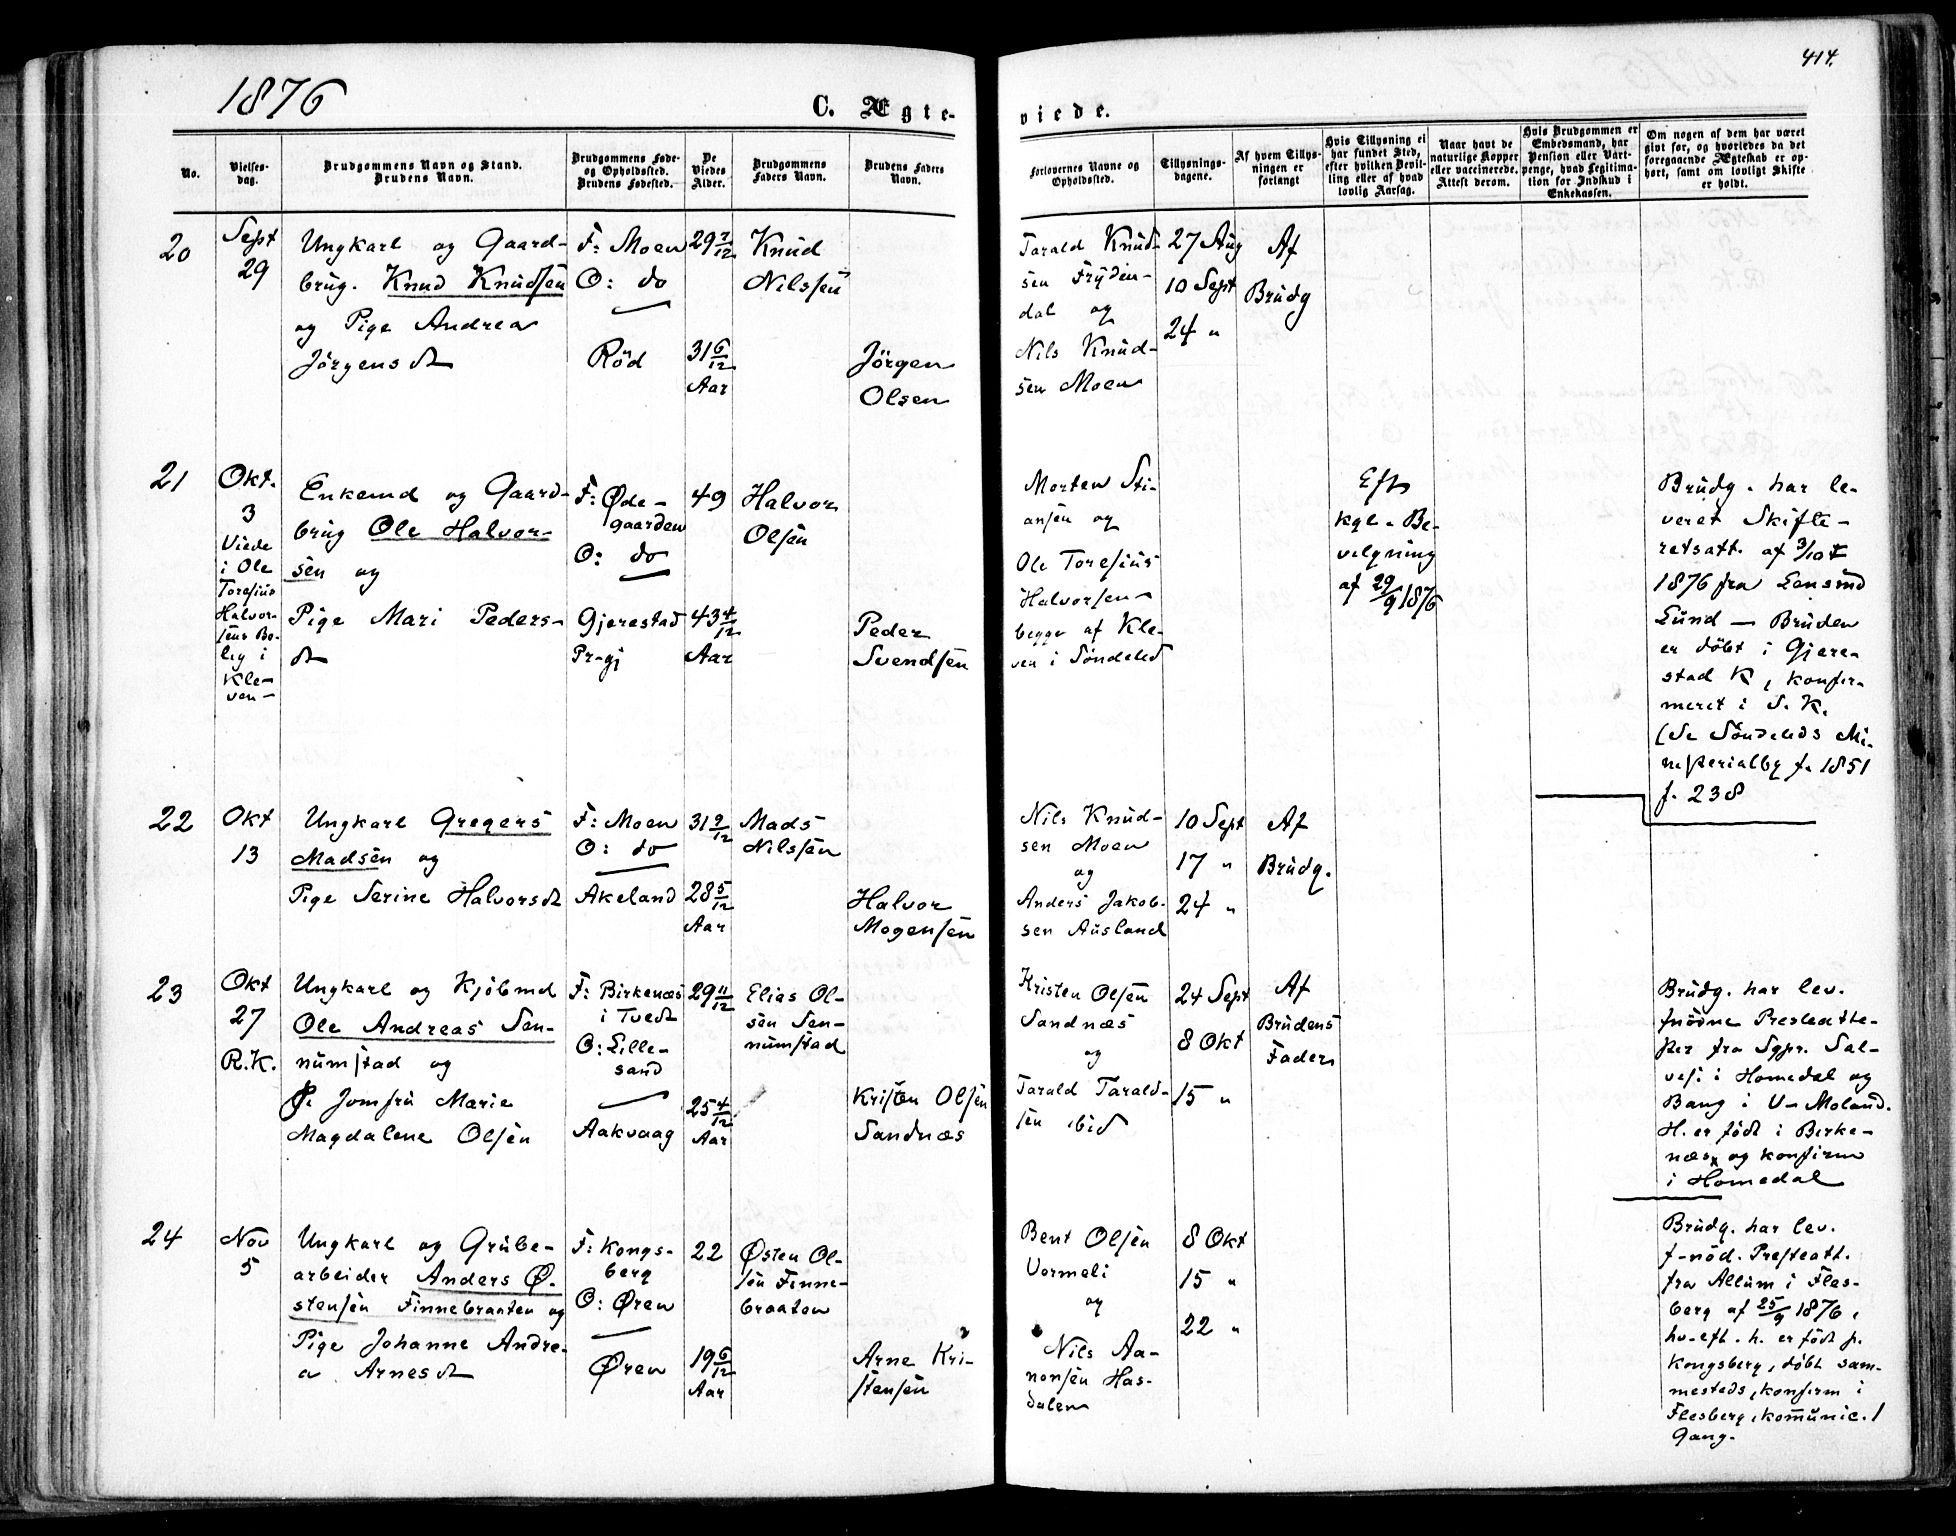 1876
C. Ægte-
viede.
414.
No.
Vielses-
dag.
Brudgommens Navn og Stand.
Brudens Navn.
Brudgommens Føde-
og Opholdssted.
Brudens Fødested.
De
Viedes
Alder.
Brudgommens
Faders Navn.
Brudens Faders
Navn.
Forlovernes Navne og
Opholdssted.
Tillysnings-
dagene.
Af hvem Tillys-
ningen er
forlangt
Hvis Tillysning ei
har fundet Sted,
efter hvilken Bevil-
ling eller af hvad
lovlig Aarsag.
Naar havt de
naturlige Kopper
eller vaccinerede.
Attest derom.
Hvis Brudgommen er
Embedsmand, har
Pension eller Vart-
penge, hvad Legitima-
tion for Indskud i
Enkekassen.
Om nogen af dem har været
givt før, og hvorledes da det
foregaaende Ægteskab er op-
hørt, samt om lovligt Skifte
er holdt.
20
Sept
29
Ungkarl og Gaard-
brug. Knud Knudsen
og Pige Andrea
Jörgensdt
F: Moen
O: do
Röd
29 7/12
31 6/12
Aar
Knud
Nilssen
Jörgen
Olsen
Tarald Knud-
sen Fryden-
dal og
Nils Knud-
sen Moen
27 Aug
10 Sept
24 "
Af
Brudg
21
Okt.
3
Viede
i Ole
Toresius
Halvor-
sens Bo-
lig i
Kle-
ven-
Enkemd og Gaard-
brug Ole Halvor-
sen og
Pige Mari Peders-
dt
F: Øde-
gaarden
O: do
Gjerestad
Pr-gj
49
43 4/12
Aar
Halvor
Olsen
Peder
Svendsen
Morten Sti-
ansen og
Ole Toresius
Halvorsen
begge af Kle-
ven i Söndeled
Eft
kgl. Be-
vilgning
af 29/9 1876
Brudg. har le-
veret Skifte-
retsatt. af 3/10
1876 fra Lensmd
Lund - Bruden
er döbt i Gjere-
stad K, konfir-
meret i S. K.
(Se Söndeleds Mi-
nisterialbg f. 1851
f. 238
22
Okt
13
Ungkarl Gregers
Madsen og
Pige Serine Halvorsdt
F: Moen
O: do
Akeland
31 9/12
28 5/12
Aar
Mads
Nilssen
Halvor
Mogensen
Nils Knud-
sen Moen
og
Anders Jakob-
sen Ausland
10 Sept
17 "
24 "
Af
Brudg.
23
Okt
27
R.K.
Ungkarl og Kjöbmd
Ole Andreas Sen-
numstad og
Jomfru Marie
Magdalene Olsen
F: Birkenæs
i Tvedt
O: Lille-
sand
Aakvaag
29 11/12
25 4/12
Aar
Elias Ol-
sen Sen-
numstad
Kristen Olsen
Sandnæs
Kristen Olsen
Sandnæs
og
Tarald Tarald-
sen ibid
24 Sept
8 Okt
15 "
Af
Brudens
Fader
Brudg. har lev.
fnödne Presteatte-
ster fra Sgpr. Sal-
vesi i Homedal og
Bang i V- Moland.
H. er födt i Birke-
næs og konfirm
i Homedal
24
Nov
5
Ungkarl og Grube-
arbeider Anders Ø-
stensen Finnebraaten og
Pige Johanne Andre-
a Arnesdt
F: Kongs-
berg
O: Øren
Øren
22
19 6/12
Aar
Østen Ol-
sen Finne-
braaten
Arne Kri-
stensen
Bent Olsen
Vormeli
og
Nils Aa-
nonsen Has-
dalen
8 Okt
15 "
22 "
Brudg. har lev.
f-nöd. Presteatt.
fra Allum i Fles-
berg af 25/9 1876,
hv-eft. h. er födt p.
Kongsberg, döbt sam-
mesteds, konfirm i
Flesberg, komunic. 1
Gang.